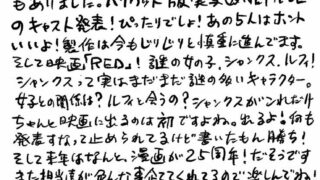 もありました。ハリウッド版実
のキャスト発表！ぴったりでしょ！あの5人はホント
いいよ！製作は今もじりじりと慎重に進んでます。
そして映画「RED」！謎の女の子、シャンクス、ルフィ！
シャンクスって実はまだまだ謎の多いキャラクター。
女子との関係は？ルフィと会うの？シャンクスがこれだけ
ちゃんと映画に出るのは初ですよね。出るよ！何も
発表すなって止められてるけど書いたもん勝ち！
そして来年はなんと、漫画が25周年！だそうです
また担当達が色んな事企ててくれてるので楽しんでね！